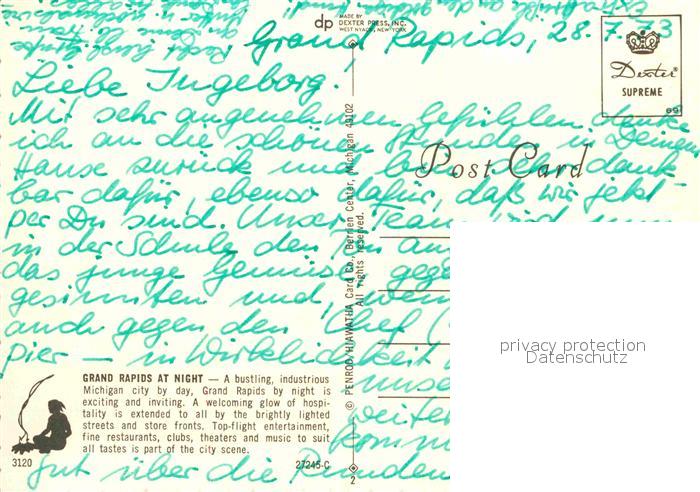 MADE BY
dp DEXTER PRESS, INC.
WEST NYACK, NEW YORK
Grand Rapids, 28.7.73
Dexter®
SUPREME
Liebe Ingeborg!
Mit sehr angenehmen Gefühlen denke
ich an die schönen Stunden in Deinem
Hause zurück und bin Dir dank-
bar dafür, ebenso dafür, daß wir jetzt
per Du sind. Unser Team wird nun
in der Schule den
das junge Gemüse gege
gesinnten und, wenn
auch gegen den Chef
pier — in Wirklichkeit
unse
weiter
komm
gut über die Runden
Post Card
© PENROD/HIAWATHA Card Co., Berrien Center, Michigan 49102
All rights reserved.
privacy protection
Datenschutz
GRAND RAPIDS AT NIGHT — A bustling, industrious
Michigan city by day, Grand Rapids by night is
exciting and inviting. A welcoming glow of hospi-
tality is extended to all by the brightly lighted
streets and store fronts. Top-flight entertainment,
fine restaurants, clubs, theaters and music to suit
all tastes is part of the city scene.
3120
27245-C
2